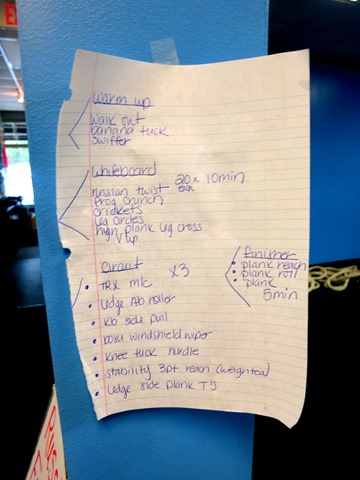 EXI
warm up
walk out
banana tuck
swiffer
whiteboard
russian twist 20x each 10min
frog crunch
crickets
leg circles
high plank leg cross
V up
Circuit x3
• TRX mtc
• wedge Ab roller
• Kb side pull
• bosu windshield wiper
• knee tuck hurdle
• stability 3pt reach (weighted)
• wedge side plank T's
finisher
• plank reach
• plank roll
• plank
5min